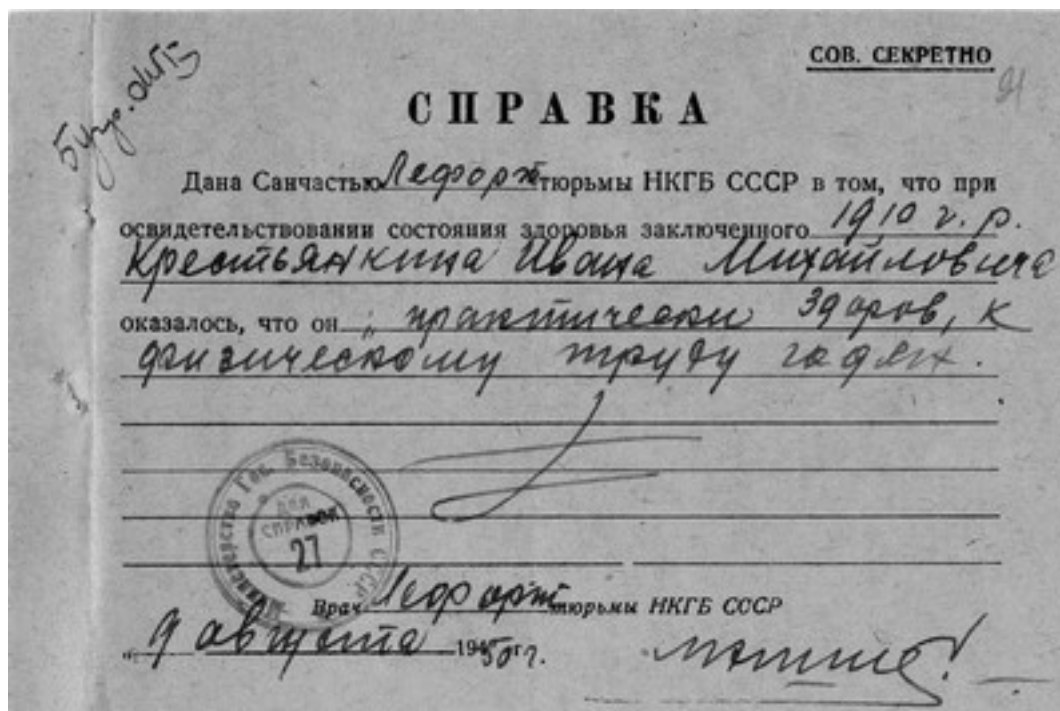 СОВ. СЕКРЕТНО
21
СПРАВКА
Дана Санчастью Лефорт тюрьмы НКГБ СССР в том, что при
освидетельствовании состояния здоровья заключенного 1910 г. р.
Крестьянкина Ивана Михайловича
оказалось, что он „ практически здоров, к
физическому труду годен.
Министерство Гос. Безопасности СССР
ДЛЯ
СПРАВОК
27
Врач Лефорт тюрьмы НКГБ СССР
„ 9 августа 1950 г.